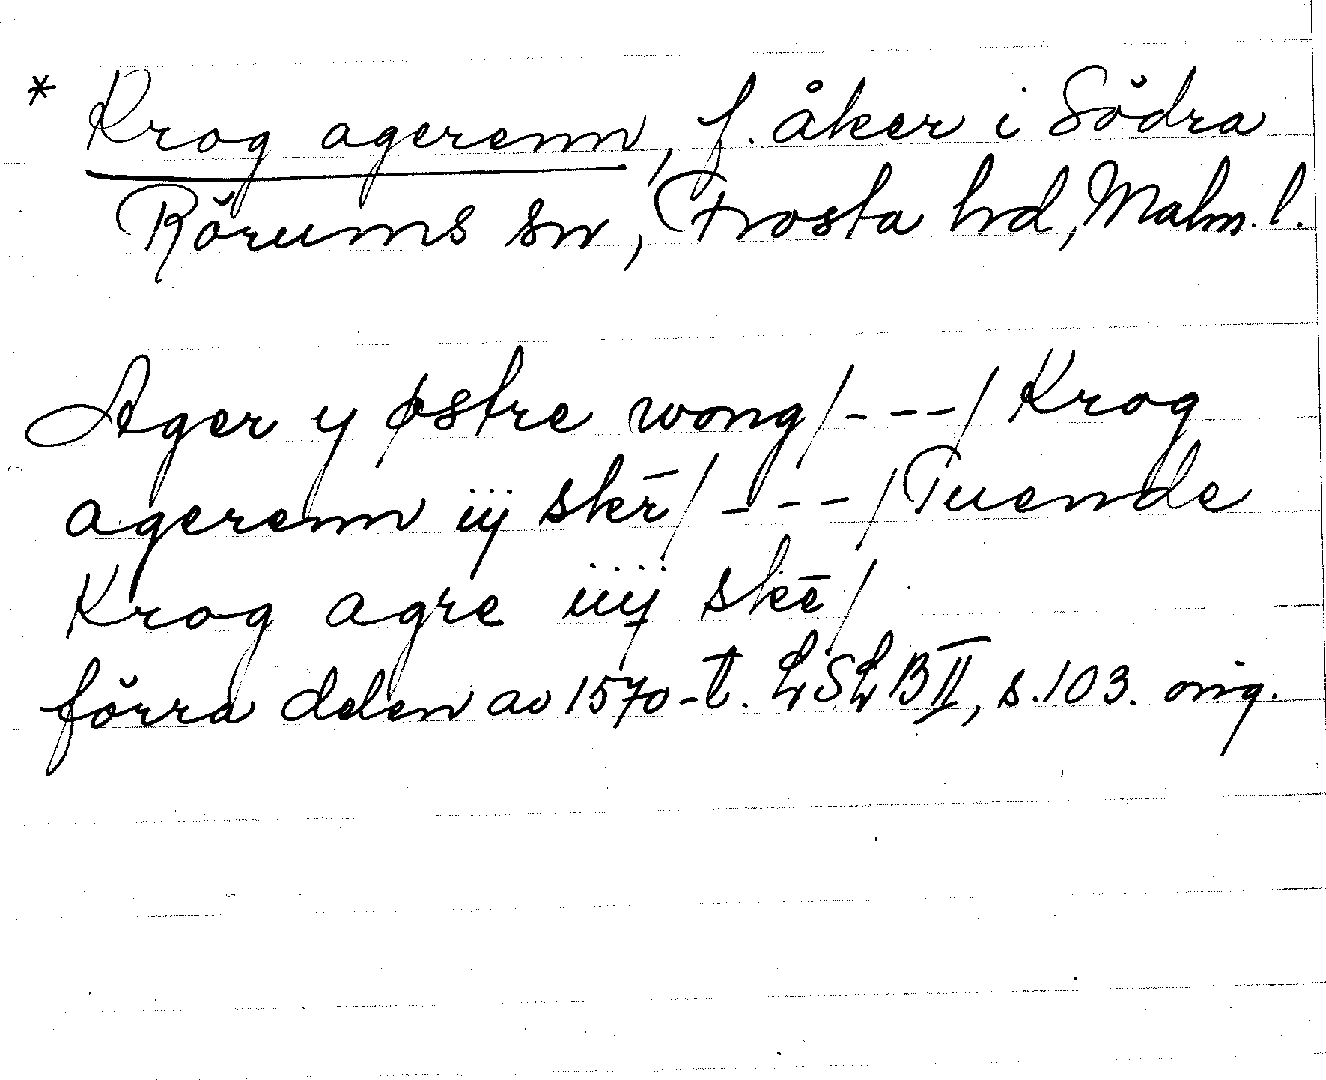 * Krog agerenn, f. åker i Södra
Rörums sn, Frosta hd, Malm. l.
Ager y østre wong / - - - / Krog
agerenn iij skr̄ / - - - / Tuende
Krog agre iiij skē /
förra delen av 1570-t. LSLB II, s. 103. orig.